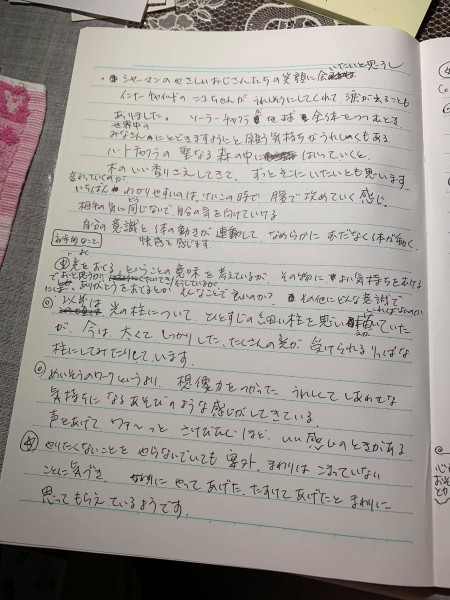 いたいと思うし
・シャーマンのやさしいおじさんたちの笑顔に会
インナーチャイルドのニコちゃんが うれしそうにしてくれて、涙が出ることも
ありました。 ソーラーチャクラ 地球 全体をつつむとき、
世界中の
みなさんにとどきますようにと願う気持ちがうれしくもある
ハートチャクラの 聖なる森の中に はいっていくと、
木のいい香りさえしてきて、ずっとそこにいたいとも思います。
いちばん わかりやすいのは、けいこの時で 腹で攻めていく感じ。
相手の気に同じないで自分の気を向けていける
自分の意識と体の動きが連動して なめらかに むだなく体が動く、
快感を感じます。
光をおくる ということの意味を考えているが、その物に よい気持ちをあげる
ありがとうをおくるとか そんなことで良いのか? その他にどんな意識で
いればよいのか
◎ 以前は 光の柱について、ひとすじの細い柱を思い描いていた
が、今は、太くて しっかりした、たくさんの光が 受けられる りっぱな
柱にしてみたりしています。
◎ めいそうのワークというより、想像力をつかった うれしくて しあわせな
気持ちに なるあそびのような感じがしてきている
声をあげて、ワァ〜っと さけびたいほど、いい感じのときがある
やりたくないことを やらないでいても 案外、まわりは こまっていない
ことに気づき、 やってあげた、たすけてあげたと まわりに
思ってもらえているようです。